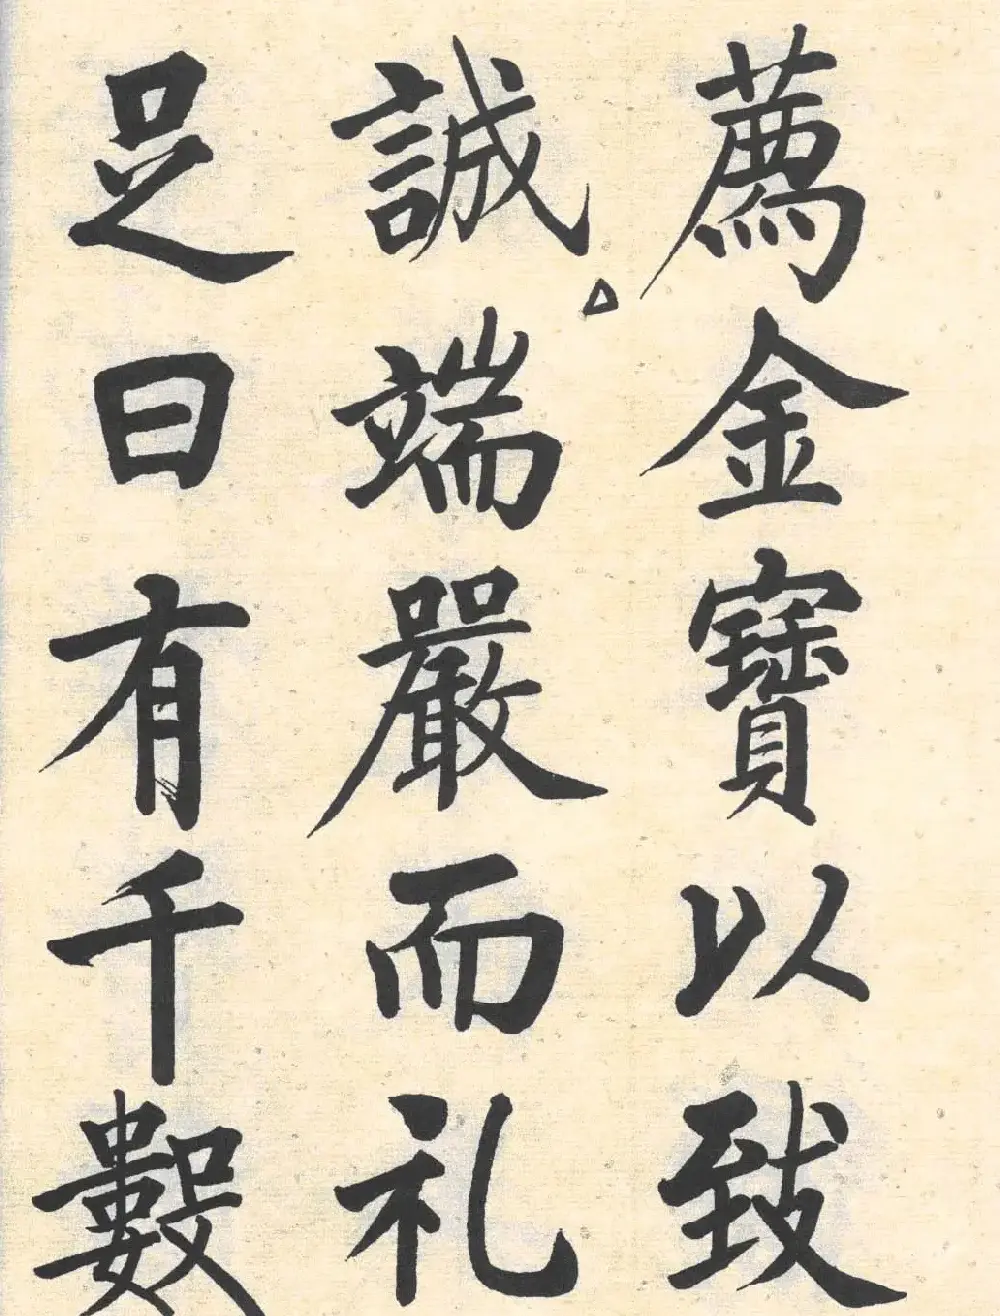 薦金寶以致
誠端嚴而礼
足曰有千數